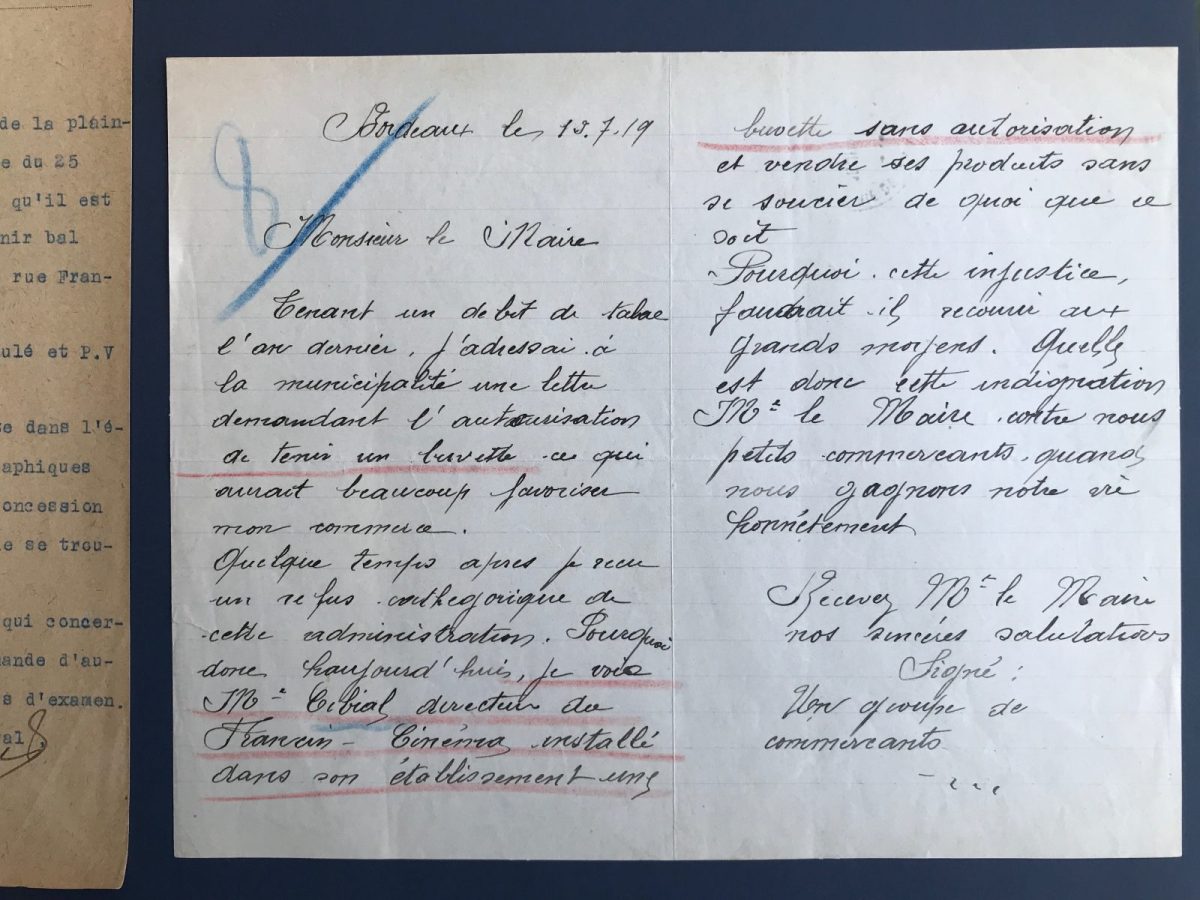 de la plain-
e du 25
qu'il est
nir bal
rue Fran-
ulé et P.V
e dans l'é-
aphiques
oncession
e se trou-
qui concer-
ande d'au-
s d'examen.
al.
Bordeaux le 13.7.19
Monsieur le Maire
Tenant un debit de tabac
l'an dernier, j'adressai à
la municipalité une lettre
demandant l'autourisation
de tenir un buvette ce qui
aurait beaucoup favoriser
mon commerce.
Quelque temps apres je recu
un refus cathegorique de
cette administration. Pourquoi
donc haujourd'huis, je vois
Mr Cibial directeur du
Francin-Cinéma installé
dans son établissement une
buvette sans autorisation
et vendre ses produits sans
se soucier de quoi que ce
soit
Pourquoi cette injustice,
faudrait-il recourir aux
grands moyens. Quelle
est donc cette indignation
Mr le Maire contre nous
petits commercants quand
nous gagnons notre vie
honnêtement
Recevez Mr le Maire
nos sincéres salutations
Signé :
Un groupe de
commercants